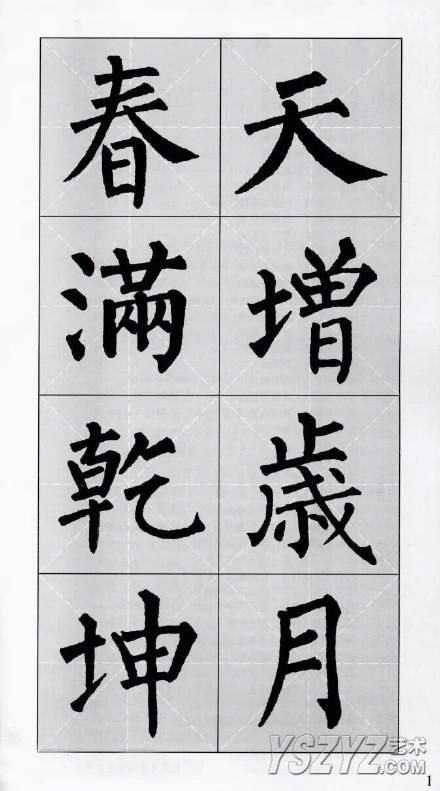 天增歲月
春滿乾坤
YSZYZ艺术
1